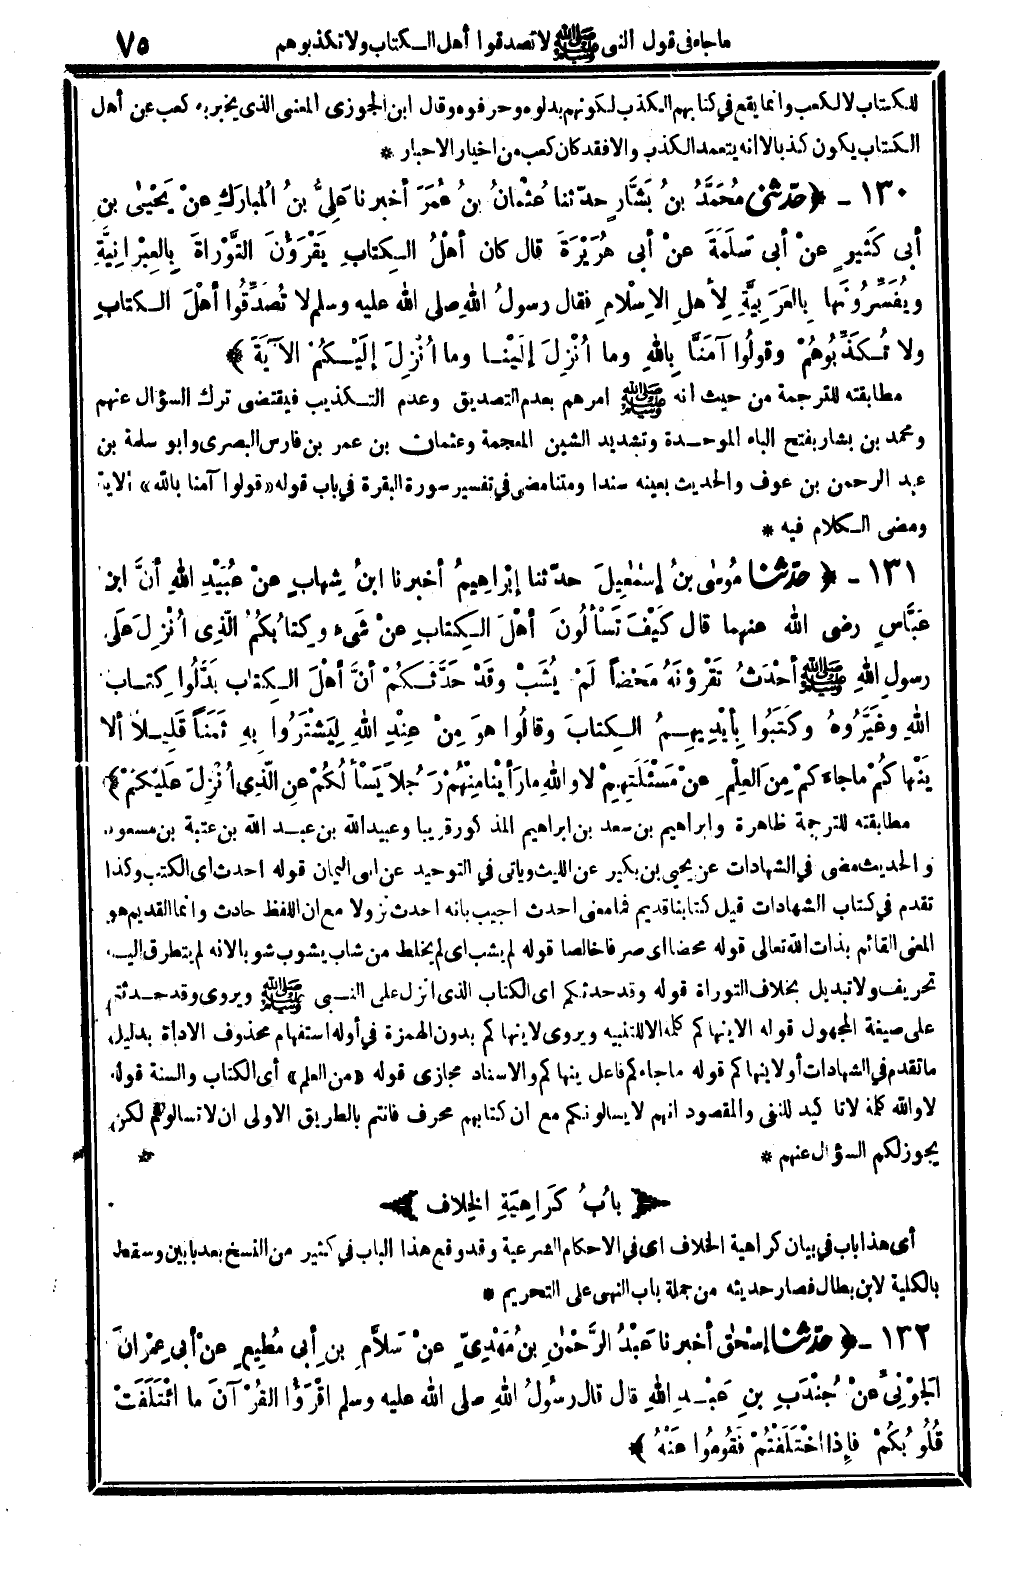 ما جاء في قول النبي ﷺ لا تصدقوا أهل الكتاب ولا تكذبوهم ٧٥
للكتاب لا لكعب وانما يقع في كتابهم الكذب لكونهم بدلوه وحرفوه وقال ابن الجوزي المعنى الذي يخبر به كعب عن أهل
الكتاب يكون كذبا لا انه يتعمد الكذب والا فقد كان كعب من اخيار الاحبار *
١٣٠ - ﴿ حدّثني مُحَمَّدُ بنُ بَشَّارٍ حدّثنا عُثْمَانُ بنُ عُمَرَ أخبرنا عَلِيُّ بنُ المُبارَكِ عنْ يَحْيَىٰ بنِ
أبي كَثِيرٍ عنْ أبي سَلَمَةَ عنْ أبي هُرَيْرَةَ قال كان أهْلُ الكِتابِ يَقْرَؤُنَ التَّوْراةَ بِالعِبْرَانِيَّةِ
ويُفَسِّرُونَها بِالعَرَبِيَّةِ لِأهلِ الإِسْلامِ فقال رسولُ اللهِ صلى الله عليه وسلم لا تُصَدِّقُوا أهْلَ الكِتابِ
ولا تُكَذِّبُوهُمْ وقولُوا آمَنَّا باللهِ وما أُنْزِلَ إلَيْنا وما أُنْزِلَ إليْكُمْ الآيَةَ ﴾ *
مطابقته للترجمة من حيث انه ﷺ امرهم بعدم التصديق وعدم التكذيب فيقتضى ترك السؤال عنهم
ومحمد بن بشار بفتح الباء الموحدة وتشديد الشين المعجمة وعثمان بن عمر بن فارس البصرى وابو سلمة بن
عبد الرحمن بن عوف والحديث بعينه سندا ومتنا مضى في تفسير سورة البقرة في باب قوله «قولوا آمنا بالله» الآية
ومضى الكلام فيه *
١٣١ - ﴿ حدّثنا مُوسَى بنُ إسْمٰعِيلَ حدّثنا إبْراهِيمُ أخبرنا ابنُ شِهابٍ عنْ عُبَيْدِ اللهِ أنَّ ابنَ
عَبَّاسٍ رضى الله عنهما قال كَيْفَ تَسْألُونَ أهْلَ الكِتابِ عنْ شَيْءٍ وكِتابُكُمُ الَّذِى أُنْزِلَ عَلَى
رسولِ اللهِ ﷺ أحْدَثُ تَقْرَؤُنَهُ مَحْضاً لَمْ يُشَبْ وقَدْ حَدَّثَكُمْ أنَّ أهْلَ الكِتابِ بَدَّلُوا كِتابَ
اللهِ وغَيَّرُوهُ وكَتَبُوا بِأيْدِيهِمُ الكِتابَ وقالُوا هوَ مِنْ عِنْدِ اللهِ لِيَشْتَرُوا بِهِ ثَمَناً قَلِيلاً ألا
يَنْهاكُمْ ما جاءَكُمْ مِنَ العِلْمِ عنْ مَسْئَلَتِهِمْ لا واللهِ ما رأيْنا مِنْهُمْ رَجُلاً يَسْألُكُمْ عنِ الَّذِى أُنْزِلَ عَلَيْكُمْ ﴾
مطابقته للترجمة ظاهرة وابراهيم بن سعد بن ابراهيم المذكور قريبا وعبيد الله بن عبد الله بن عتبة بن مسعود
والحديث مضى في الشهادات عن يحيى بن بكير عن الليث ويأتى في التوحيد عن ابى اليمان قوله احدث اى الكتب وكذا
تقدم في كتاب الشهادات قيل كتابنا قديم فما معنى احدث اجيب بانه احدث نزولا مع ان اللفظ حادث وانما القديم هو
المعنى القائم بذات الله تعالى قوله محضا اى صرفا خالصا قوله لم يشب اى لم يخلط من شاب يشوب شوبا لانه لم يتطرق اليه
تحريف ولا تبديل بخلاف التوراة قوله وقد حدثكم اى الكتاب الذى انزل على النبي ﷺ ويروى وقد حدثتم
على صيغة المجهول قوله الا ينهاكم كلمة الا للتنبيه ويروى لا ينهاكم بدون الهمزة في أوله استفهام محذوف الاداة بدليل
ما تقدم في الشهادات أولا ينهاكم قوله ما جاءكم فاعل ينهاكم والاسناد مجازى قوله «من العلم» أى الكتاب والسنة قوله
لا والله كلمة لا تاكيد للنفى والمقصود انهم لا يسالونكم مع ان كتابهم محرف فانتم بالطريق الاولى ان لا تسالوهم لكن
يجوز لكم السؤال عنهم *
﴿ بابُ كَرَاهِيَةِ الخِلافِ ﴾
أى هذا باب في بيان كراهية الخلاف اى في الاحكام الشرعية وقد وقع هذا الباب في كثير من النسخ بعد بابين وسقط
بالكلية لابن بطال فصار حديثه من جملة باب النهى على التحريم *
١٣٢ - ﴿ حدّثنا إسْحٰقُ أخبرنا عَبْدُ الرَّحْمٰنِ بنُ مَهْدِيٍّ عنْ سَلاَّمِ بنِ أبي مُطِيعٍ عنْ أبي عِمْرَانَ
الجَوْنِيِّ عنْ جُنْدَبِ بنِ عَبْدِ اللهِ قال قال رسولُ اللهِ صلى الله عليه وسلم اقْرَؤُا القُرْآنَ ما ائْتَلَفَتْ
قُلُوبُكُمْ فإذا اخْتَلَفْتُمْ فَقُومُوا عنْهُ ﴾ *